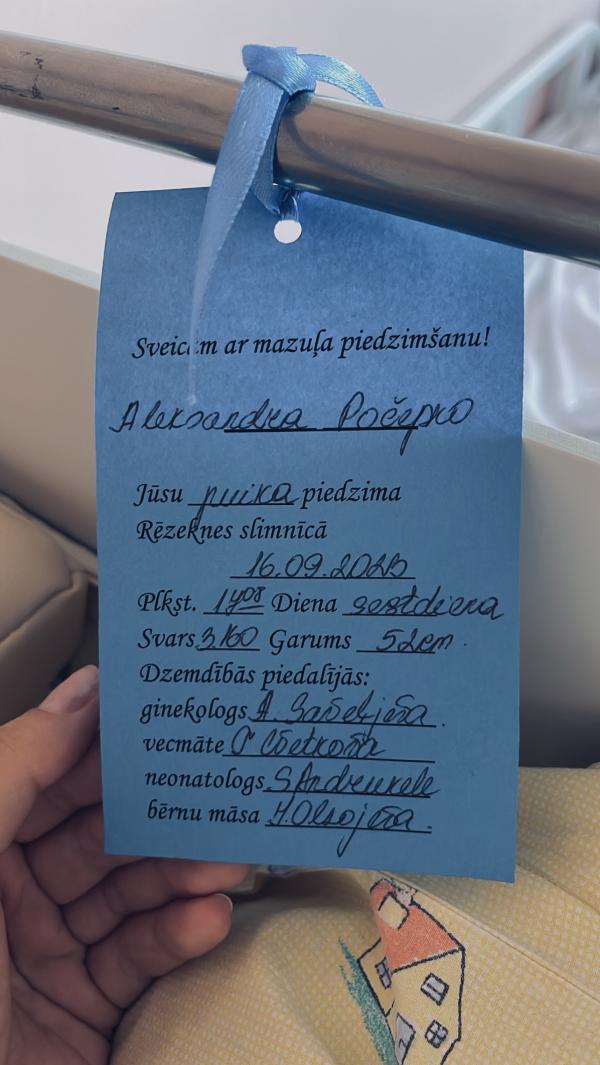 Sveicam ar mazuļa piedzimšanu!
Aleksandra Počepko
Jūsu puika piedzima
Rēzeknes slimnīcā
16.09.2023
Plkst. Diena sestdiena
Svars 3160 Garums 52cm.
Dzemdībās piedalījās:
ginekologs A.
vecmāte
neonatologs S
bērnu māsa